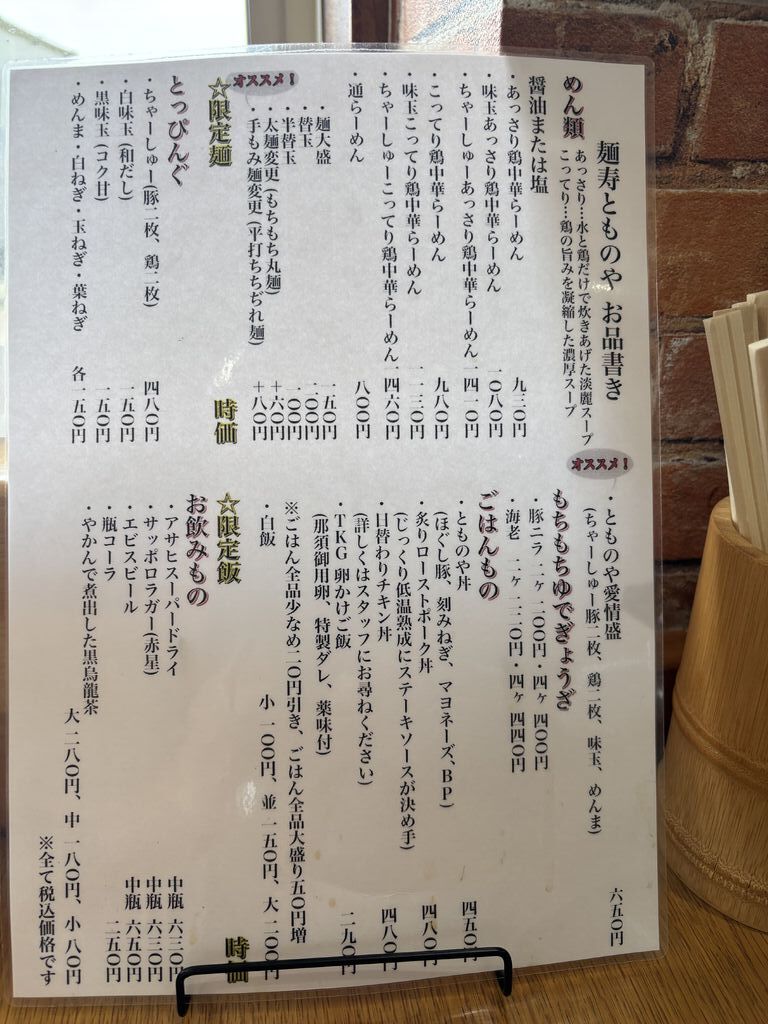 麺寿とものや お品書き
めん類
あっさり…水と鶏だけで炊きあげた淡麗スープ
こってり…鶏の旨みを凝縮した濃厚スープ
醤油または塩
・あっさり鶏中華らーめん 九三〇円
・味玉あっさり鶏中華らーめん 一〇八〇円
・ちゃーしゅーあっさり鶏中華らーめん 一四一〇円
・こってり鶏中華らーめん 九八〇円
・味玉こってり鶏中華らーめん 一一三〇円
・ちゃーしゅーこってり鶏中華らーめん 一四六〇円
・通らーめん 八〇〇円
・麺大盛 一五〇円
・替玉 二〇〇円
・半替玉 一〇〇円
・太麺変更(もちもち丸麺) +六〇円
・手もみ麺変更(平打ちちぢれ麺) +八〇円
オススメ!
☆限定麺 時価
とっぴんぐ
・ちゃーしゅー(豚二枚、鶏二枚) 四八〇円
・白味玉(和だし) 一五〇円
・黒味玉(コク甘) 一五〇円
・めんま・白ねぎ・玉ねぎ・葉ねぎ 各一五〇円
オススメ!
・とものや愛情盛
(ちゃーしゅー豚二枚、鶏二枚、味玉、めんま) 六五〇円
もちもちゆでぎょうざ
・豚ニラ 二ヶ 二〇〇円・四ヶ 四〇〇円
・海老 二ヶ 二二〇円・四ヶ 四四〇円
ごはんもの
・とものや丼 四五〇円
(ほぐし豚、刻みねぎ、マヨネーズ、BP)
・炙りローストポーク丼 四八〇円
(じっくり低温熟成にステーキソースが決め手)
・日替わりチキン丼 四八〇円
(詳しくはスタッフにお尋ねください)
・TKG 卵かけご飯 二九〇円
(那須御用卵、特製ダレ、薬味付)
※ごはん全品少なめ二〇円引き、ごはん全品大盛り五〇円増
・白飯 小 一〇〇円、並 一五〇円、大 二〇〇円
☆限定飯 時価
お飲みもの
・アサヒスーパードライ 中瓶 六三〇円
・サッポロラガー(赤星) 中瓶 六三〇円
・エビスビール 中瓶 六五〇円
・瓶コーラ 二五〇円
・やかんで煮出した黒烏龍茶
大 二八〇円、中 一八〇円、小 八〇円
※全て税込価格です